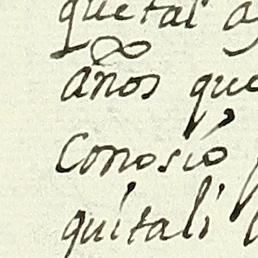 quetal a
años que
Conosió
quitali